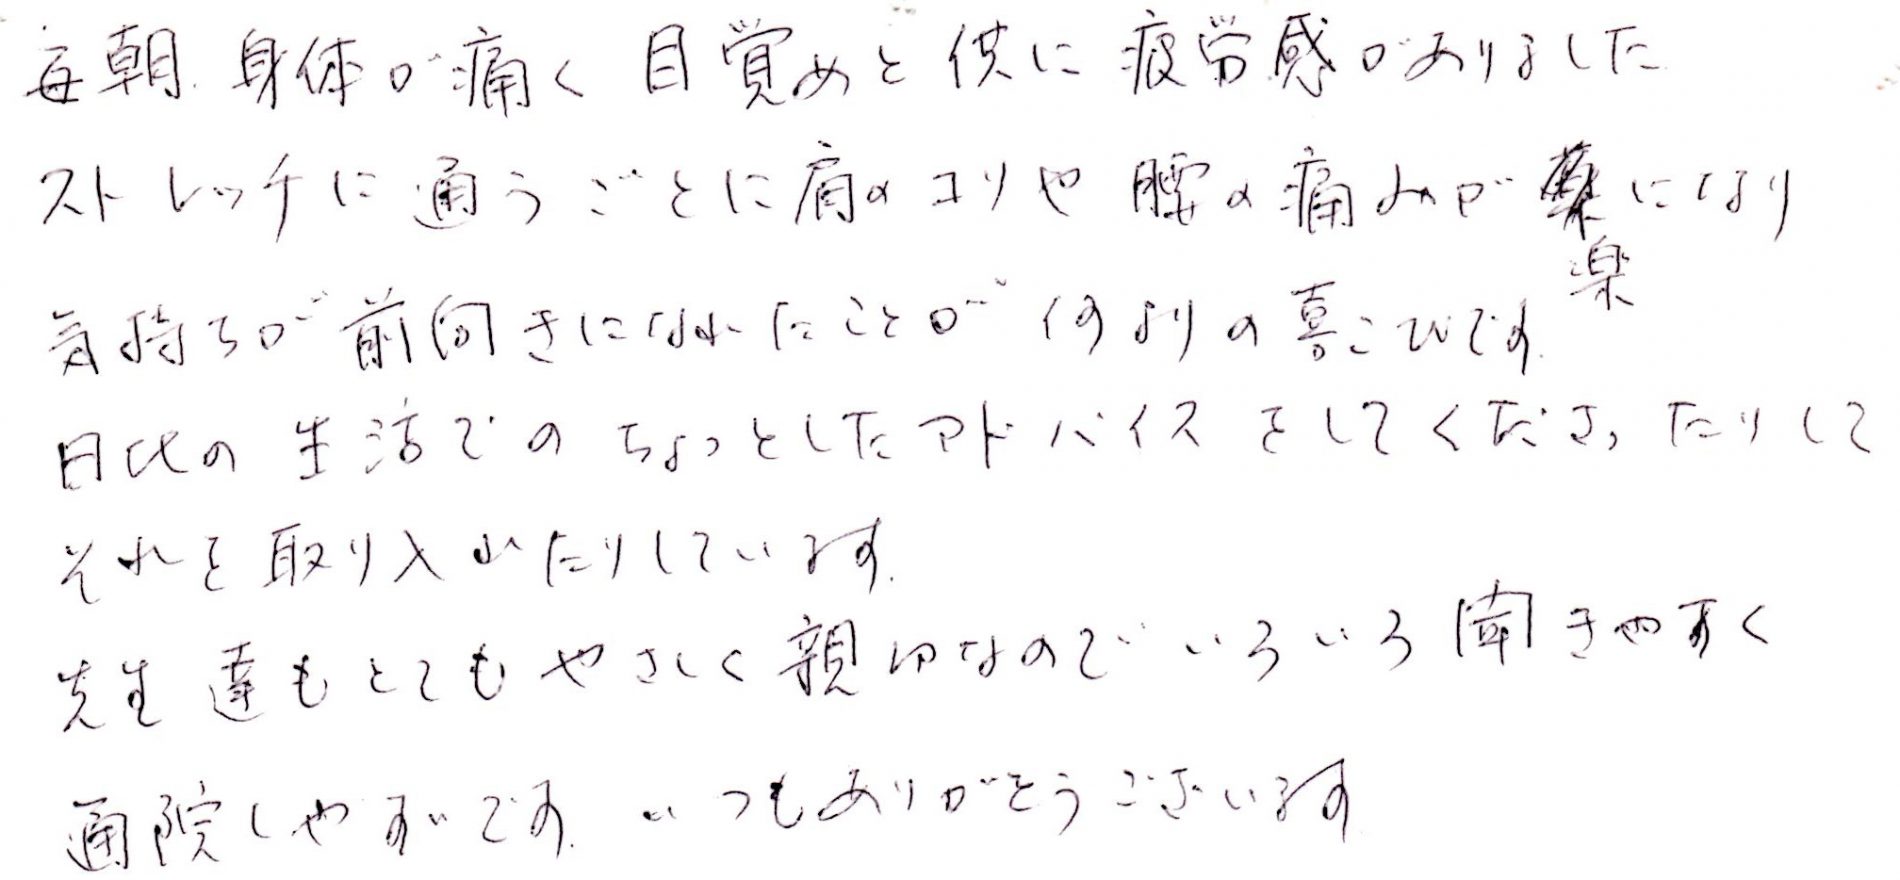 毎朝 身体が痛く 目覚めと供に 疲労感がありました
ストレッチに通うごとに肩のコリや 腰の痛みが 薬になり
楽
気持ちが前向きになれたことが 何よりの喜こびです
日比の生活でのちょっとしたアドバイスをしてくださったりして
それを取り入れたりしています
先生達もとてもやさしく親切なのでいろいろ聞きやすく
通院しやすいです いつもありがとうございます